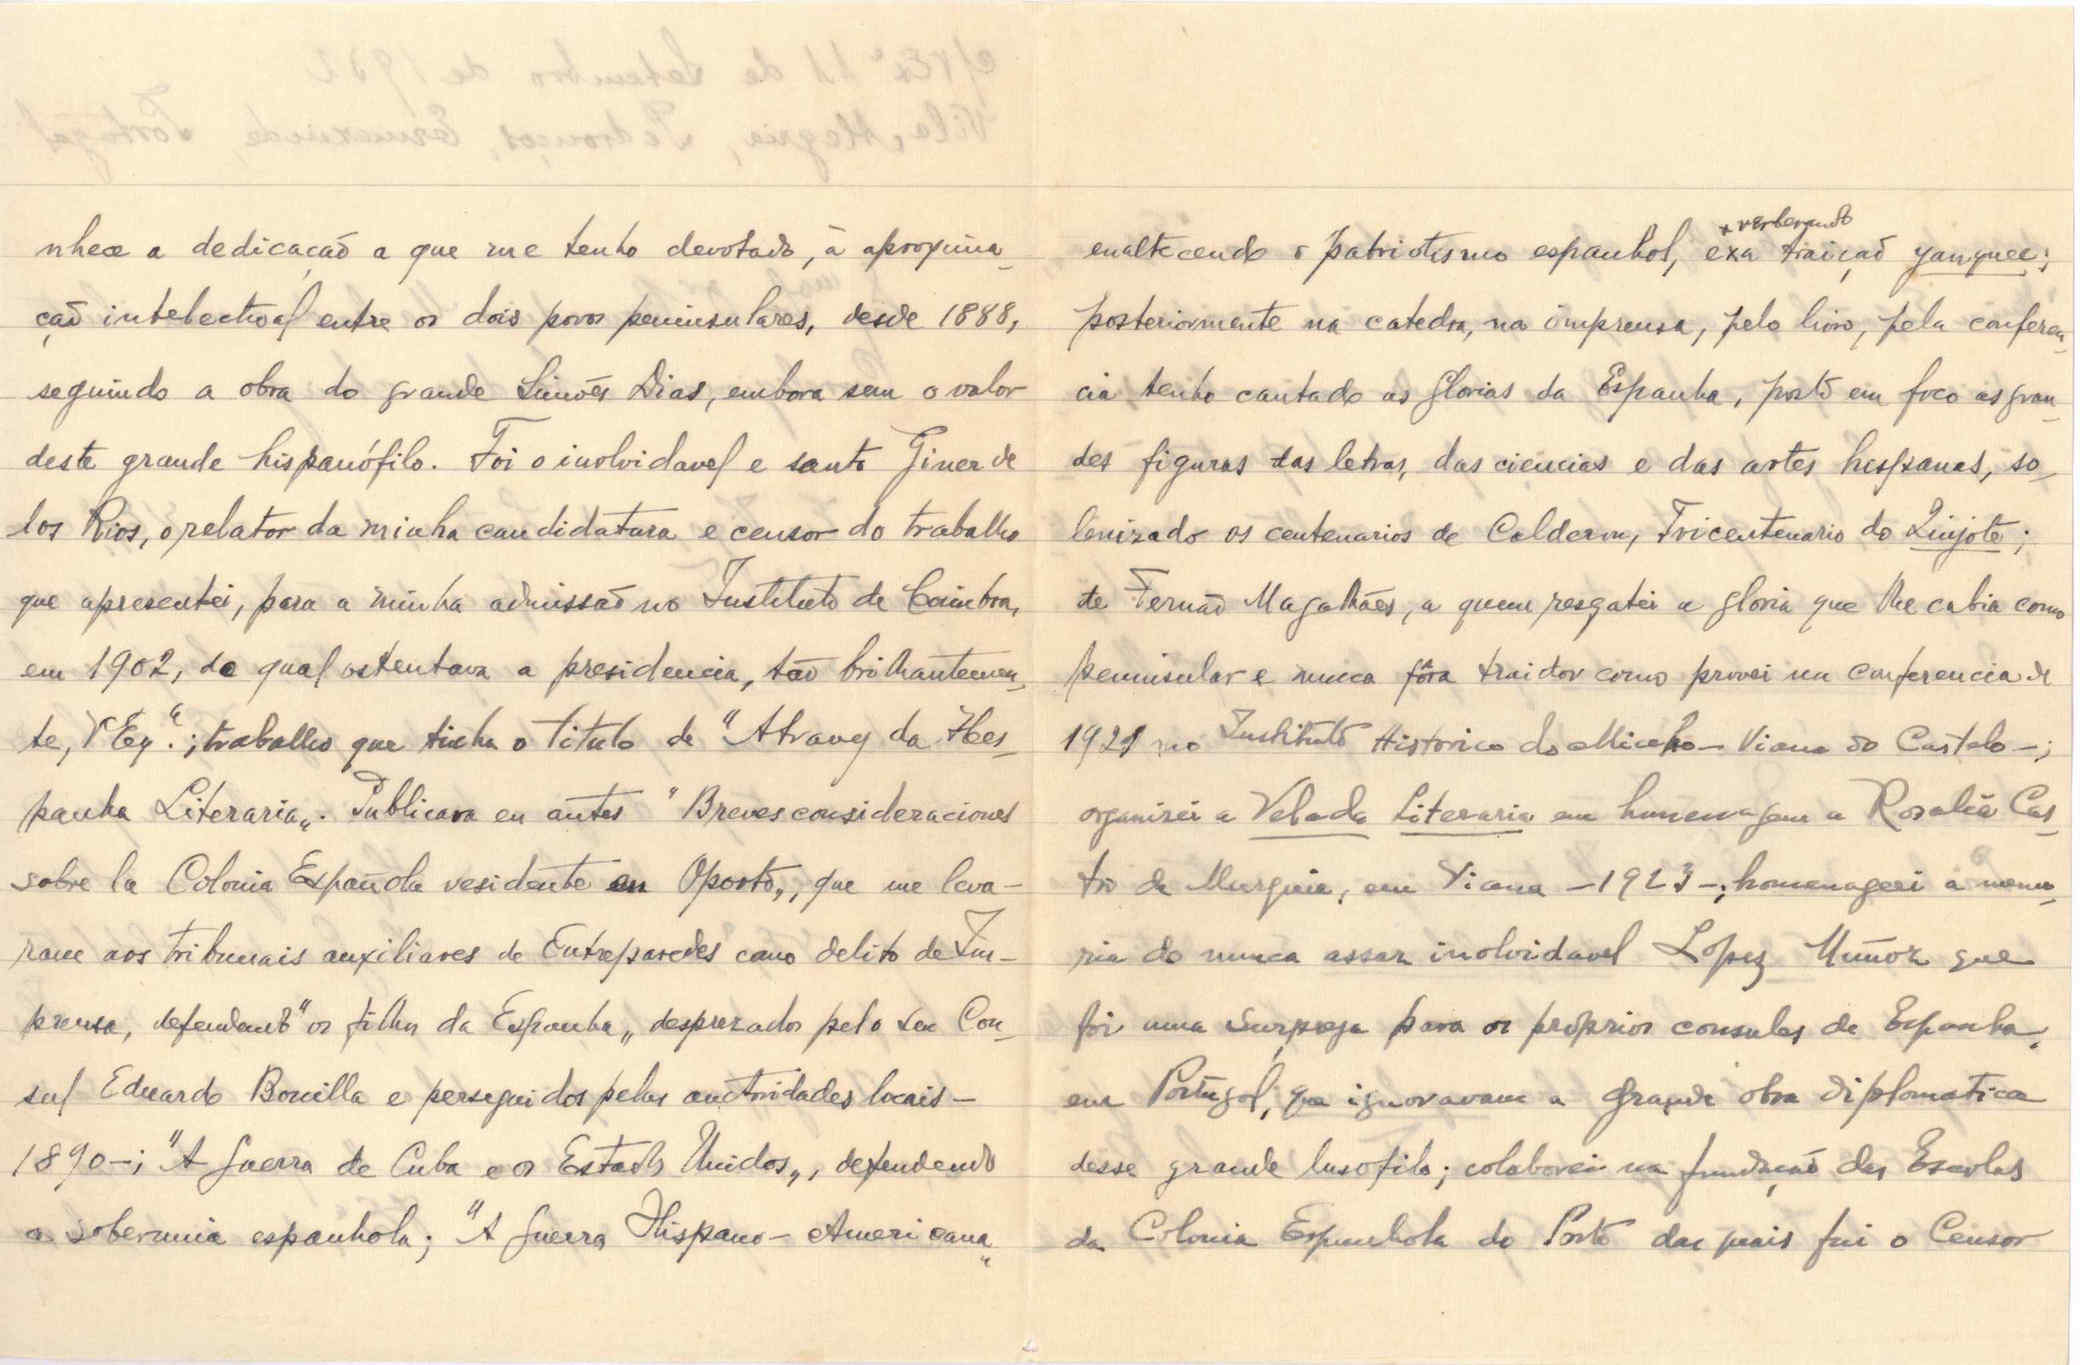 nhece a dedicação a que me tenho devotado, à aproxima-
ção intelectual entre os dois povos peninsulares, desde 1888,
seguindo a obra do grande Simões Dias, embora sem o valor
deste grande hispanófilo. Foi o inolvidavel e santo Giner de
los Rios, o relator da minha candidatura e censor do trabalho
que apresentei, para a minha admissão no Instituto de Coimbra,
em 1902, do qual ostentava a presidencia, tão brilhantemen-
te, V Exª.; trabalho que tinha o titulo de "Atravez da Hes-
panha Literaria„. Publicara eu antes "Breves consideraciones
sobre la Colonia Española residente en Oporto„, que me leva-
ram aos tribunais auxiliares de Entreparedes como delito de Im-
prensa, defendendo "os filhos da Espanha„ desprezados pelo seu Con-
sul Eduardo Bonilla e perseguidos pelas auctoridades locais -
1890-; "A Guerra de Cuba e os Estados Unidos„, defendendo
a soberania espanhola; "A Guerra Hispano-Americana„
enaltecendo o patriotismo espanhol, e verberando a traição yanquee;
posteriormente na catedra, na imprensa, pelo livro, pela conferen-
cia tenho cantado as glorias da Espanha, posto em foco as gran-
des figuras das letras, das ciencias e das artes hespanas, so-
lenizado os centenarios de Calderon, Tricentenario do Quijote;
de Fernão Magalhães, a quem resgatei a gloria que lhe cabia como
peninsular e nunca fôra traidor como provei na conferencia de
1921 no Instituto Historico do Minho - Viana do Castelo -;
organizei a Velada Literaria em homenagem a Rosalia Cas-
tro de Murguia, em Viana - 1923 -; homenageei a memo-
ria do nunca assaz inolvidavel Lopez Muñoz que
foi uma surpreza para os proprios consules de Espanha,
em Portugal, que ignoravam a grande obra diplomatica
desse grande lusofilo; colaborei na fundação das Escolas
da Colonia Espanhola do Porto das quais fui o Censor